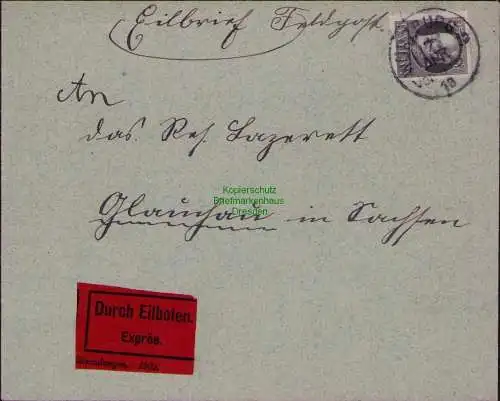 Eilbrief Feldpost.
An
das Res. Lazarett
Kopierschutz
Briefmarkenhaus
Dresden
Glauchau in Sachsen
Durch Eilboten.
Exprès.